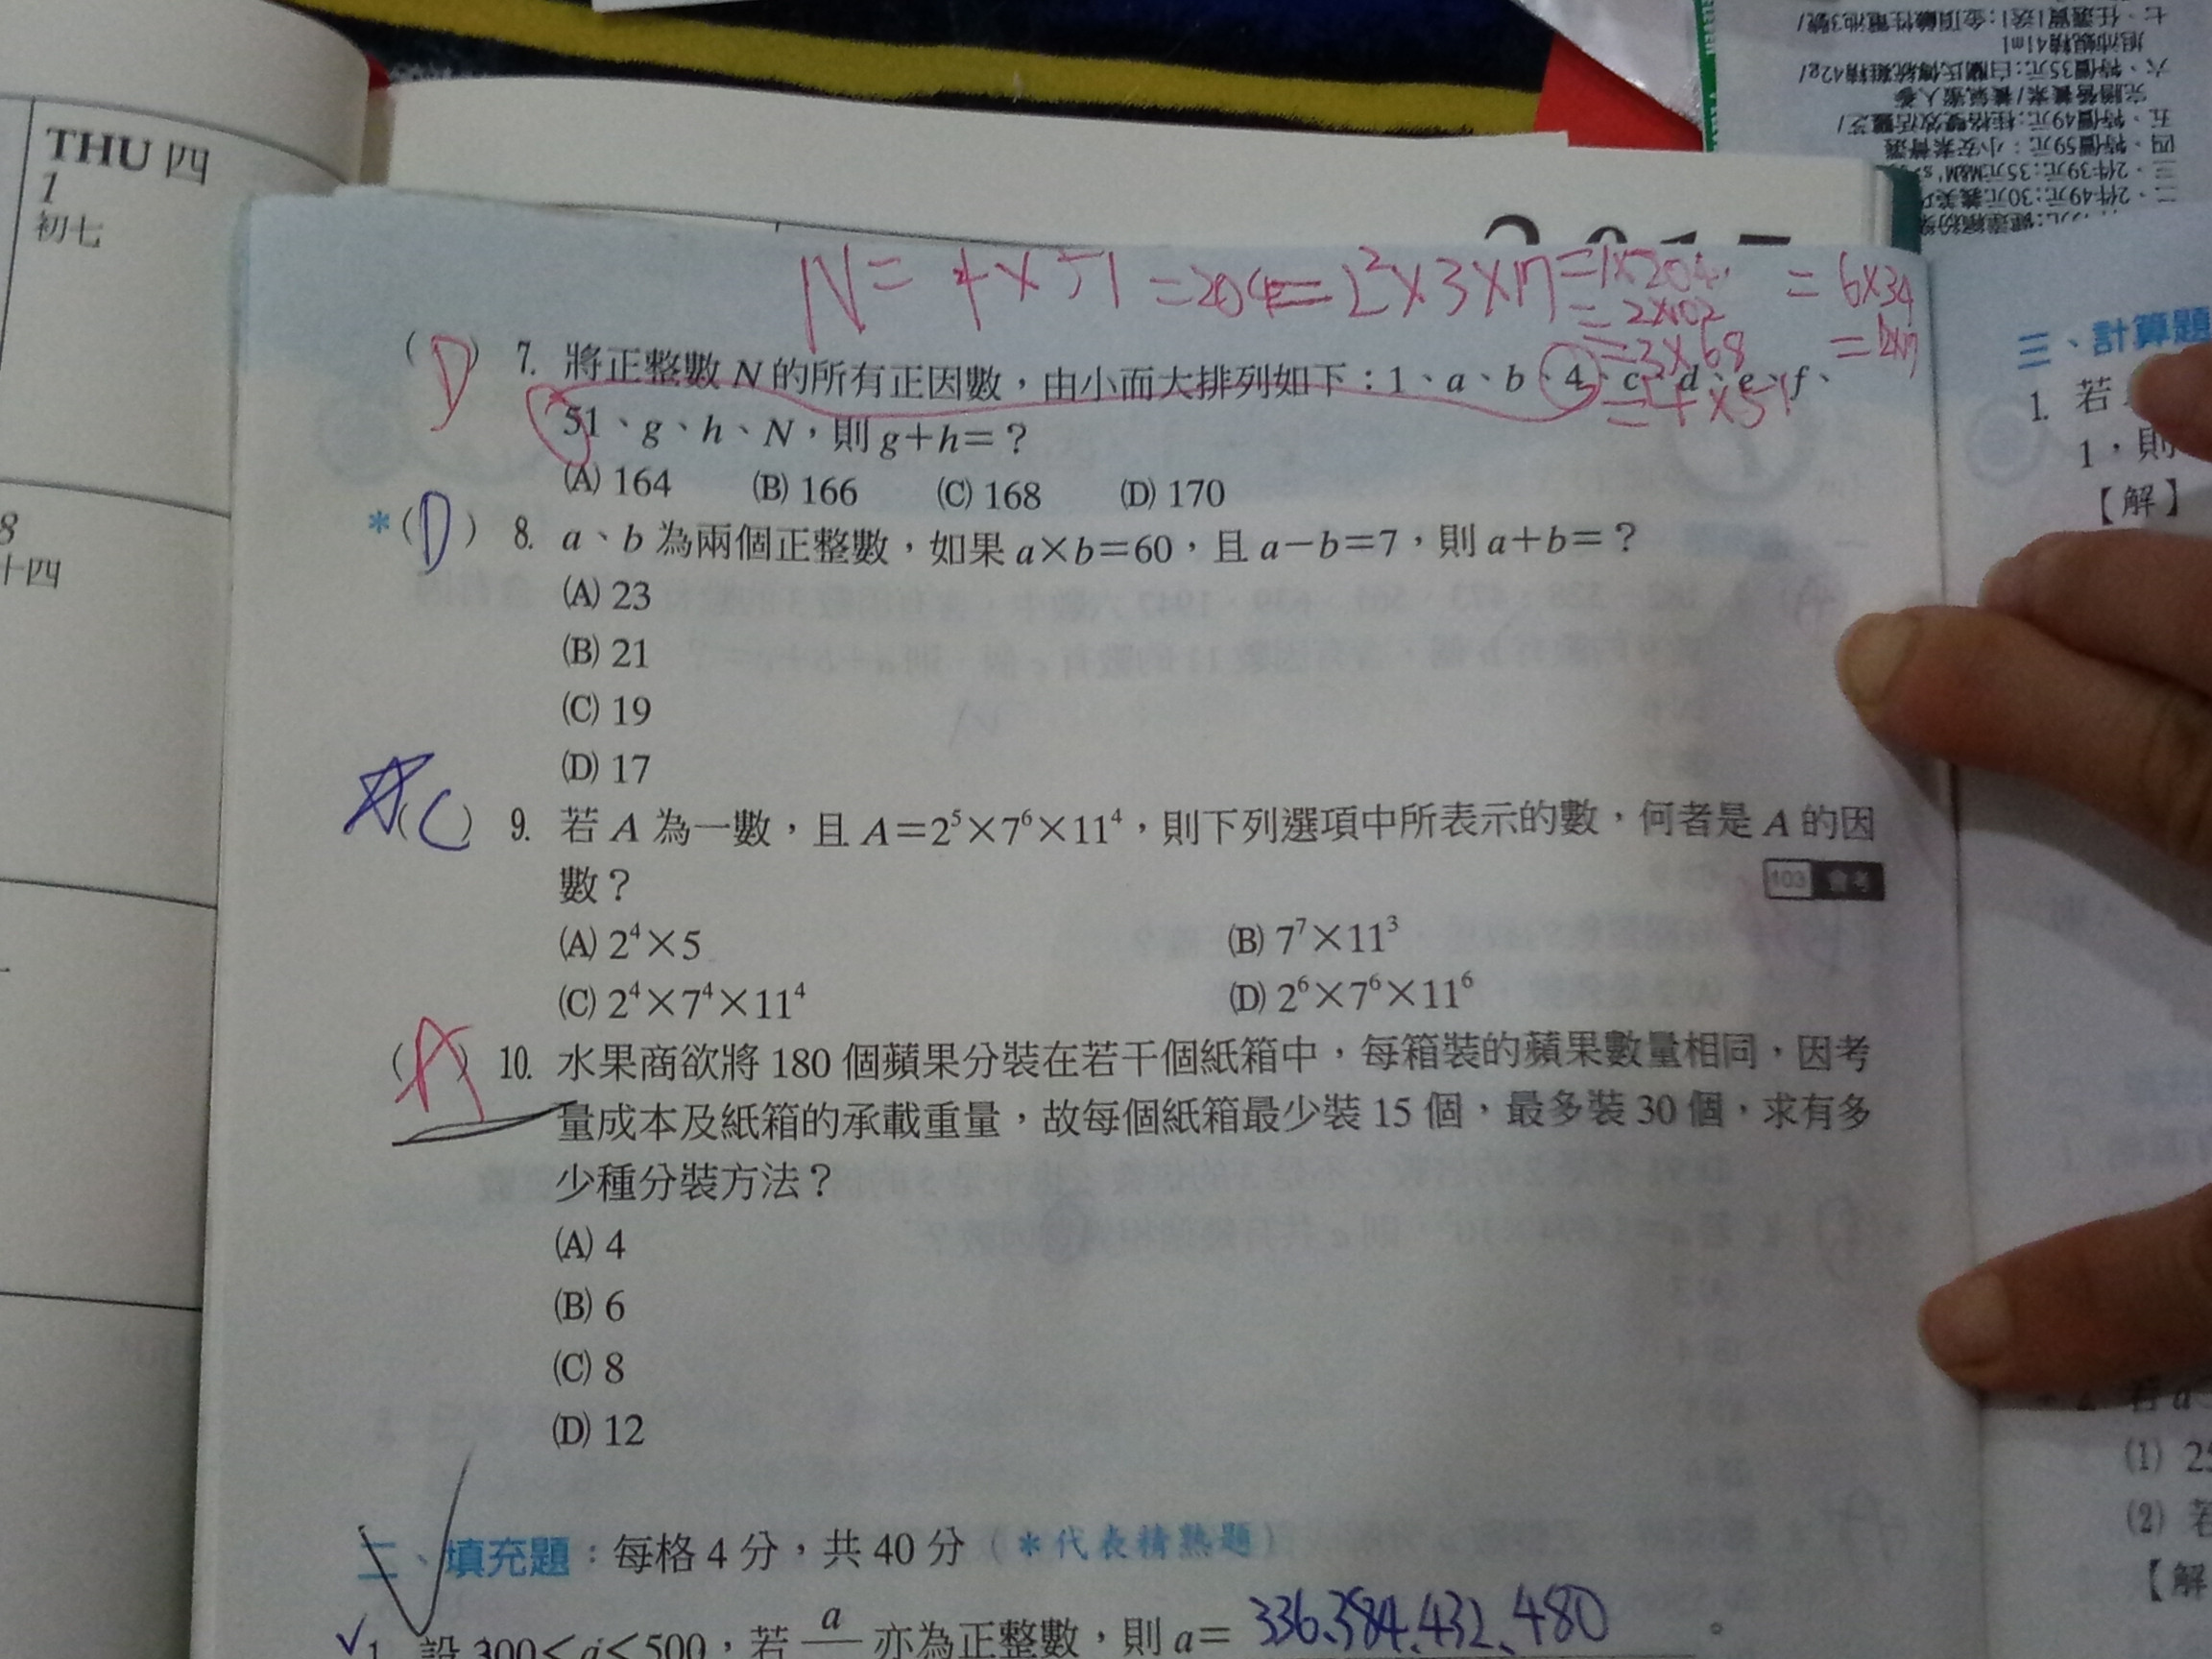 THU 四
1
初七
8
十四
七、任選買1送1:金頂鹼性電池3號/
六、特價35元:白蘭氏傳統雞精42g/
四、特價59元:小安素
三、2件39元:35元M&M's
二、2件49元:30元義美
N = 4×51 = 204 = 2²×3×17 = 1×204
= 2×102
= 3×68
= 4×51
= 6×34
= 12×17
(D) 7. 將正整數 N 的所有正因數,由小而大排列如下:1、a、b、4、c、d、e、f、
51、g、h、N,則 g+h=?
(A) 164 (B) 166 (C) 168 (D) 170
*(D) 8. a、b 為兩個正整數,如果 a×b=60,且 a-b=7,則 a+b=?
(A) 23
(B) 21
(C) 19
(D) 17
(C) 9. 若 A 為一數,且 A=2⁵×7⁶×11⁴,則下列選項中所表示的數,何者是 A 的因
數? 103 會考
(A) 2⁴×5 (B) 7⁷×11³
(C) 2⁴×7⁴×11⁴ (D) 2⁶×7⁶×11⁶
(A) 10. 水果商欲將 180 個蘋果分裝在若干個紙箱中,每箱裝的蘋果數量相同,因考
量成本及紙箱的承載重量,故每個紙箱最少裝 15 個,最多裝 30 個,求有多
少種分裝方法?
(A) 4
(B) 6
(C) 8
(D) 12
二、填充題:每格 4 分,共 40 分(*代表精熟題)
1. 設 300<a<500,若 a 亦為正整數,則 a= 336、384、432、480 。
三、計算題
1. 若
1,則
【解】
2. 若 a
(1) 25
(2) 若
【解